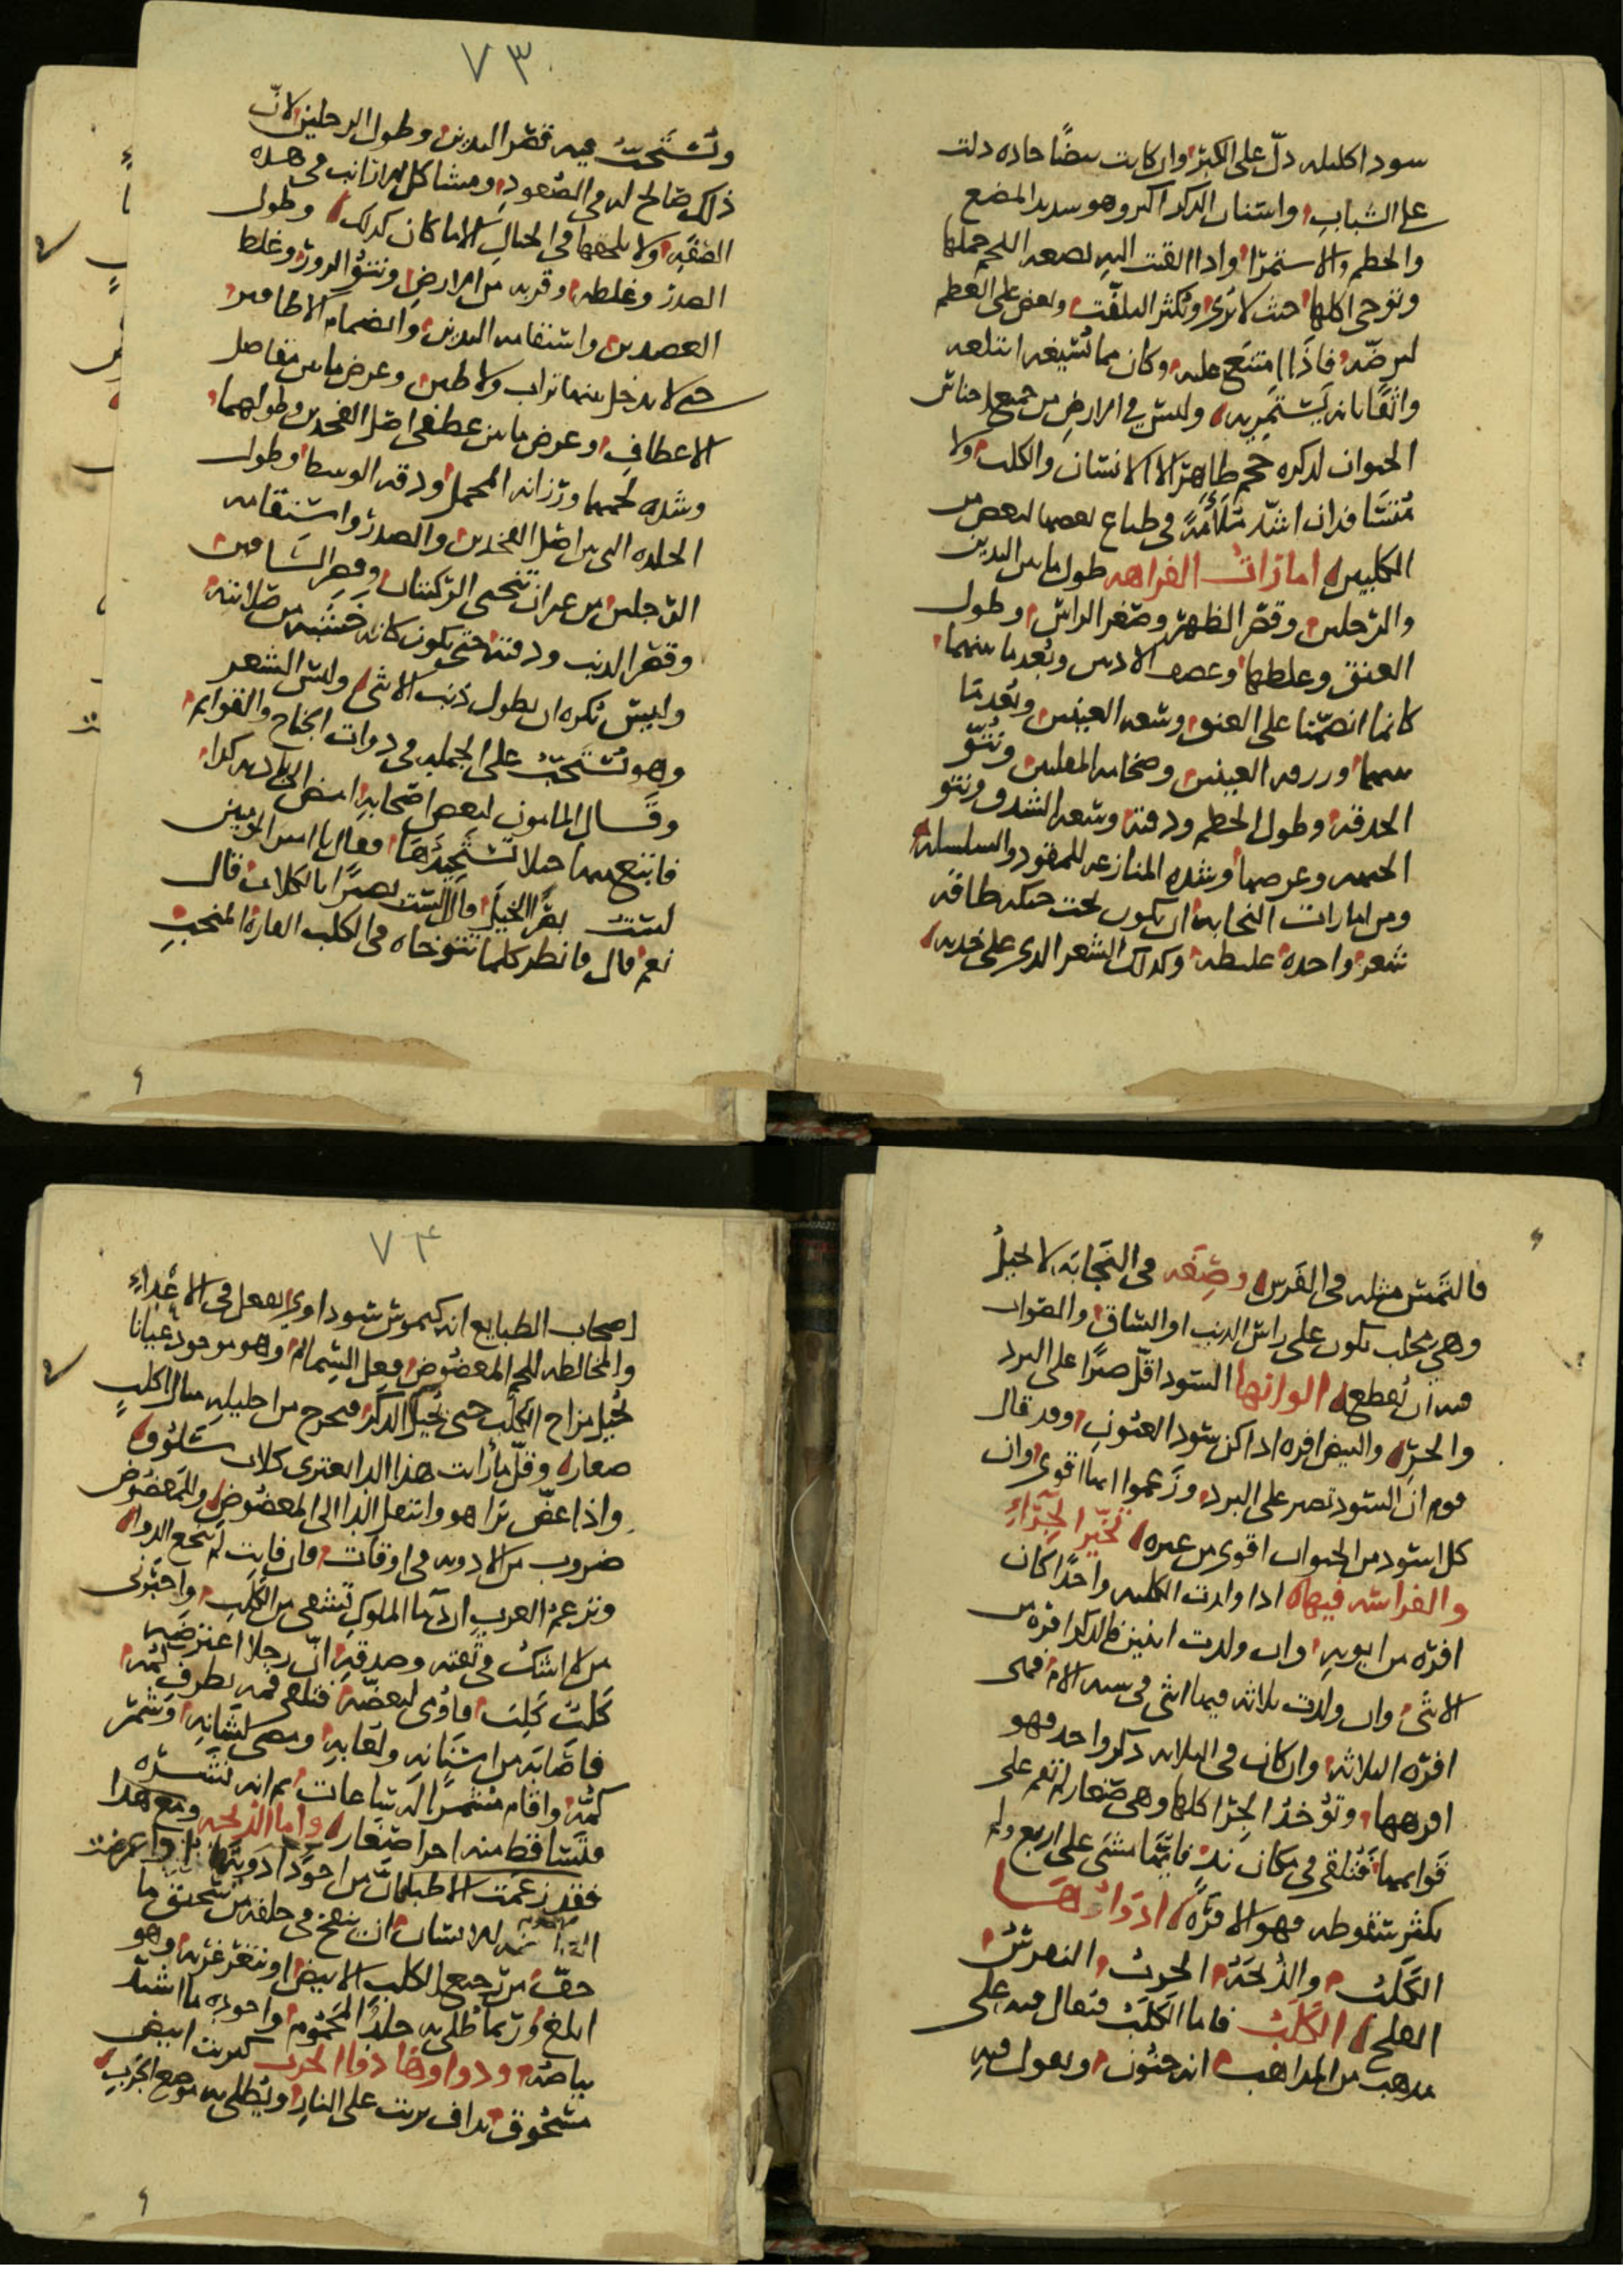 سود اكليله دلّ على الكبر وان كانت بيضًا حاده دلت
على الشباب واسنان الذكر اكبر وهو شديد المضغ
والخطم والاستمرا واذا القيت اليه بضعه اللحم حملها
وتوخى اكلها حيث لا يرى ويكثر التلفّت وبعض على العظم
ليرضّه فاذا امتنع عليه وكان مما يُسيغه ابتلعه
واثقًا بانه يستمريه وليس في الارض من جميع اجناس
الحيوان لذكره حجم ظاهر الا الانسان والكلب ولا
مُتسَافدان اشدّ مُلاءمةً في طباع بعضها لبعض من
الكلبين امارات الفراهه طول ما بين اليدين
والرجلين وقصر الظهر وصغر الراس وطول
العنق وغلظها وغضف الاذنين وبُعد ما بينهما
كانما انضمتا على العنق وسعه العينين وبُعد ما
بينهما وزرقه العينين وضخامه المقلتين ونتو
الحدقه وطول الخطم ودقته وسعه الشدق ونتو
الجبهه وعرضها وشده المنازعه للمقود والسلسله
ومن امارات النجابه ان يكون تحت حنكه طاقه
شعر واحده غليظه وكذلك الشعر الذي على خديه
٧٣
وتُستحبّ فيه قصر اليدين وطول الرجلين لانّ
ذلك صالح له في الصعود ومشاكل للارانب في هذه
الصفه ولا يلحقها في الجبال الا ما كان كذلك وطول
الصدر وغلظه وقربه من الارض ونتوّ الزور وغلظ
العضدين واستقامه اليدين وانضمام الاظافير
حتى لا يدخل بينها تراب ولا طين وعرض ما بين مفاصل
الاعطاف وعرض ما بين عطفي اصل الفخذين وطولهما
وشده لحمهما ورزانه المحمل ودقه الوسط وطول
الجلده التي بين اصل الفخذين والصدر واستقامه
الرجلين من غير ان تنحني الركبتان وقصر الساقين
وقصر الذنب ودقته حتى يكون كانه خشبه من صلابته
وليس نكره ان يطول ذنب الانثى ولين الشعر
وهو يُستحبّ على الجمله في ذوات الجناح والقوايم
وقال المامون لبعض اصحابه امض الى باديه كذا
فابتع منها خيلا تستجيدها فقال يا امير المومنين
لست بصر الخيل قال الست بصيرًا بالكلاب قال
نعم قال فانظر كلما تتوخاه في الكلب الفاره المنجب
فالتمس مثله في الفرس وصِفَه في النجابه لا تحيل
وهي مخلب يكون على راس الذنب او الساق والصواب
فيه ان تُقطع الوانها السود اقلّ صبرًا على البرد
والحرّ والبيض افره اذا كنّ سود العيون وقد قال
قوم ان السود تصبر على البرد وزعموا انها اقوى وان
كل اسود من الحيوان اقوى من غيره تخيّر الجراء
والفراسه فيها اذا ولدت الكلبه واحدًا كان
افره من ابويه وان ولدت اثنين فالذكر افره من
الانثى وان ولدت ثلاثه فيها انثى في شبه الام فهي
افره الثلاثه وان كان في الثلاثه ذكر واحد فهو
افرهها وتؤخذ الجرا كلها وهي صغار لم تقم على
قوايمها فتلقى في مكان ندٍ فايّها مشى على اربع ولم
يكثر سقوطه فهو الافره ادواءها
الكَلَبُ والذُّبحه الجرب النقرس
القلح الكلَب فاما الكَلَبُ فيقال فيه على
مذهب من المذاهب انه جنون ويقول فيه
٧٤
اصحاب الطبايع انه كيموس سوداوي يفعل في الاعداء
والمخالطه للحم المعضوض فعل السمام وهو موجود عيانا
يُحيل مزاج الكلب حتى يُحيل الذكر فيخرج من احليله مثال اكلبٍ
صغار وقلّ ما رأيت هذا الدا يعتري كلاب سلُوق
واذا عضّ برا هو وانتقل الدا الى المعضوض وللمعضوض
ضروب من الادويه في اوقات فان فاتت لم ينجع الدوا
وتزعم العرب انّ دما الملوك تشفي من الكلب واخبرني
من لا اشك في ثقته وصدقه انّ رجلا اعترضه
كلبٌ كَلِبٌ فاوى ليعضّه فتلقى فمه بطرف كُمّه
فاصابه من اسنانه ولعابه ومضى لشانه وشمّر
كمّه واقام مشمرًا له ساعات ثم انه نشره
فتساقط منه اجرا صغار واما الذبحه ومع هذا
فقد زعمت الاطبا انّ من اجود ادويتها
للانسان ان ينفخ في حلقه من سحيق ما
جفّ من رجيع الكلب الابيض او تغرغر به وهو
ابلغ وربما طلي به جلد المحموم واجوده ما اشتدّ
بياضه ودواوها دوا الجرب كبريت ابيض
مسحوق يداف بزيت على النار ويطلى به موضع الجرب